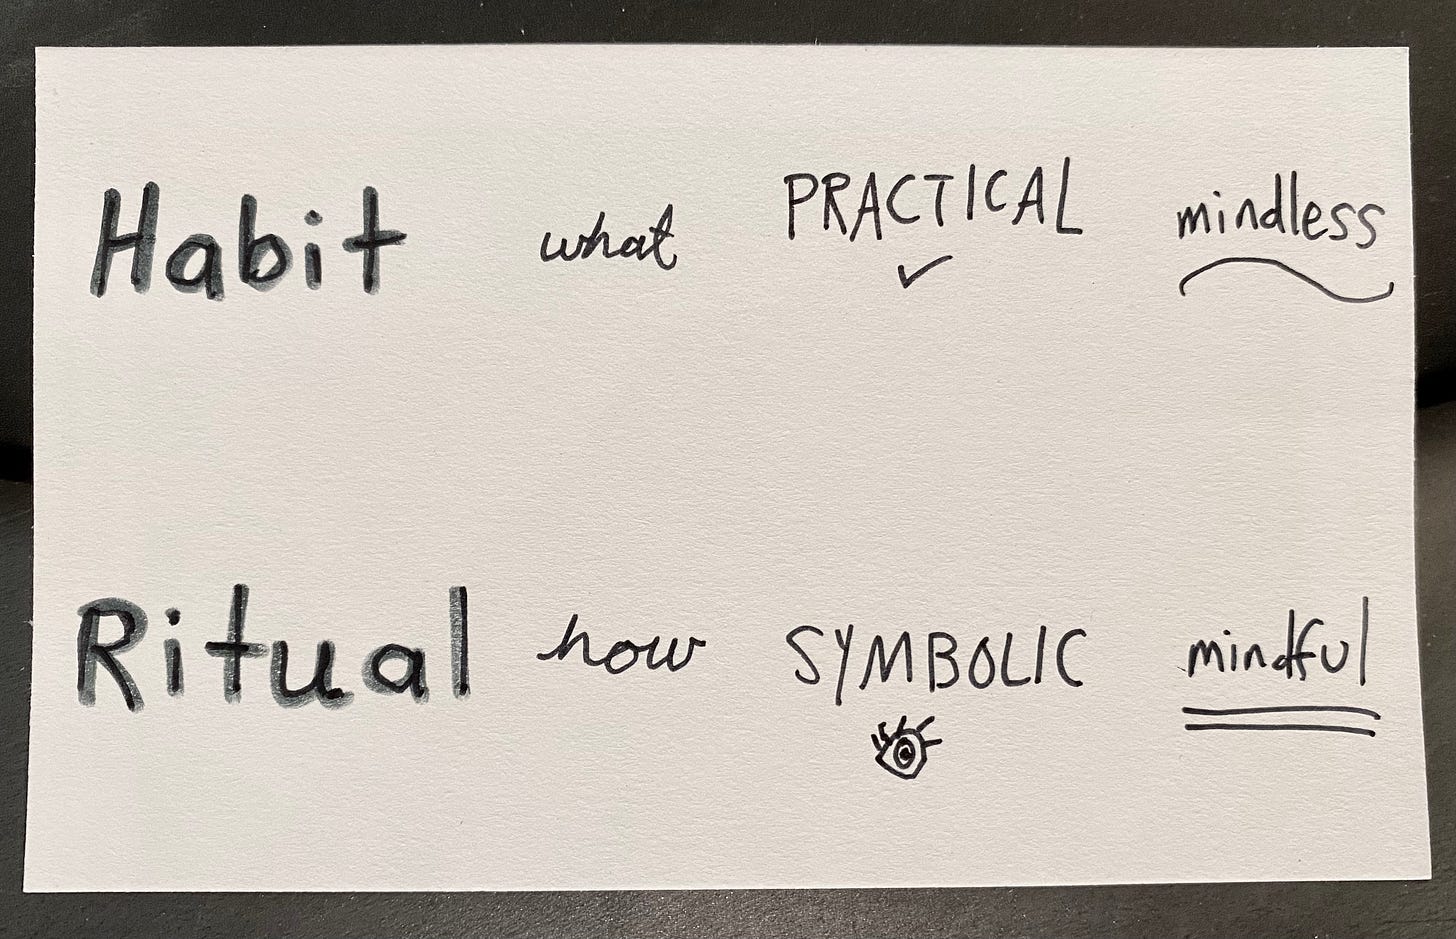 Habit what PRACTICAL mindless
Ritual how SYMBOLIC mindful